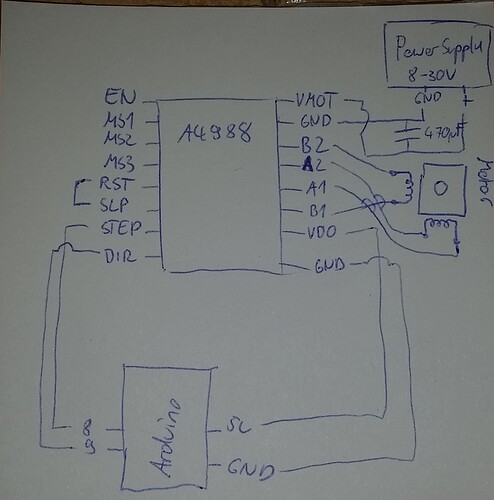 Power Supply
8-30V
GND +
EN
MS1
MS2
MS3
RST
SLP
STEP
DIR
A4988
VMOT
GND
B2
A2
A1
B1
VDO
GND
470µF
Motor
8
9
Arduino
5V
GND